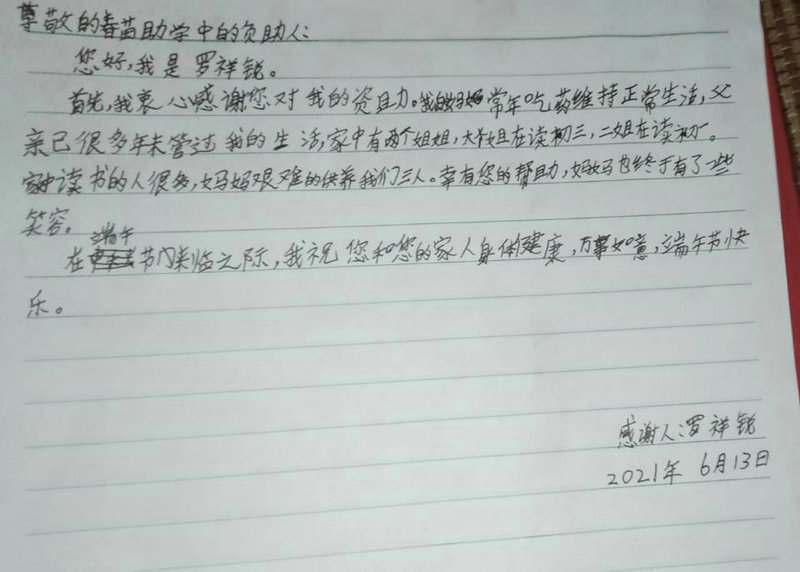 尊敬的春苗助学中的资助人:
您好,我是罗祥锐。
首先,我衷心感谢您对我的资助。我的妈妈常年吃药维持正常生活,父
亲已很多年未管过我的生活,家中有两个姐姐,大姐在读初三,二姐在读初一。
家中读书的人很多,妈妈艰难的供养我们三人。幸有您的帮助,妈妈也终于有了一些
笑容。
在端午节门来临之际,我祝您和您的家人身体健康,万事如意,端午节快
乐。
感谢人:罗祥锐
2021年 6月13日